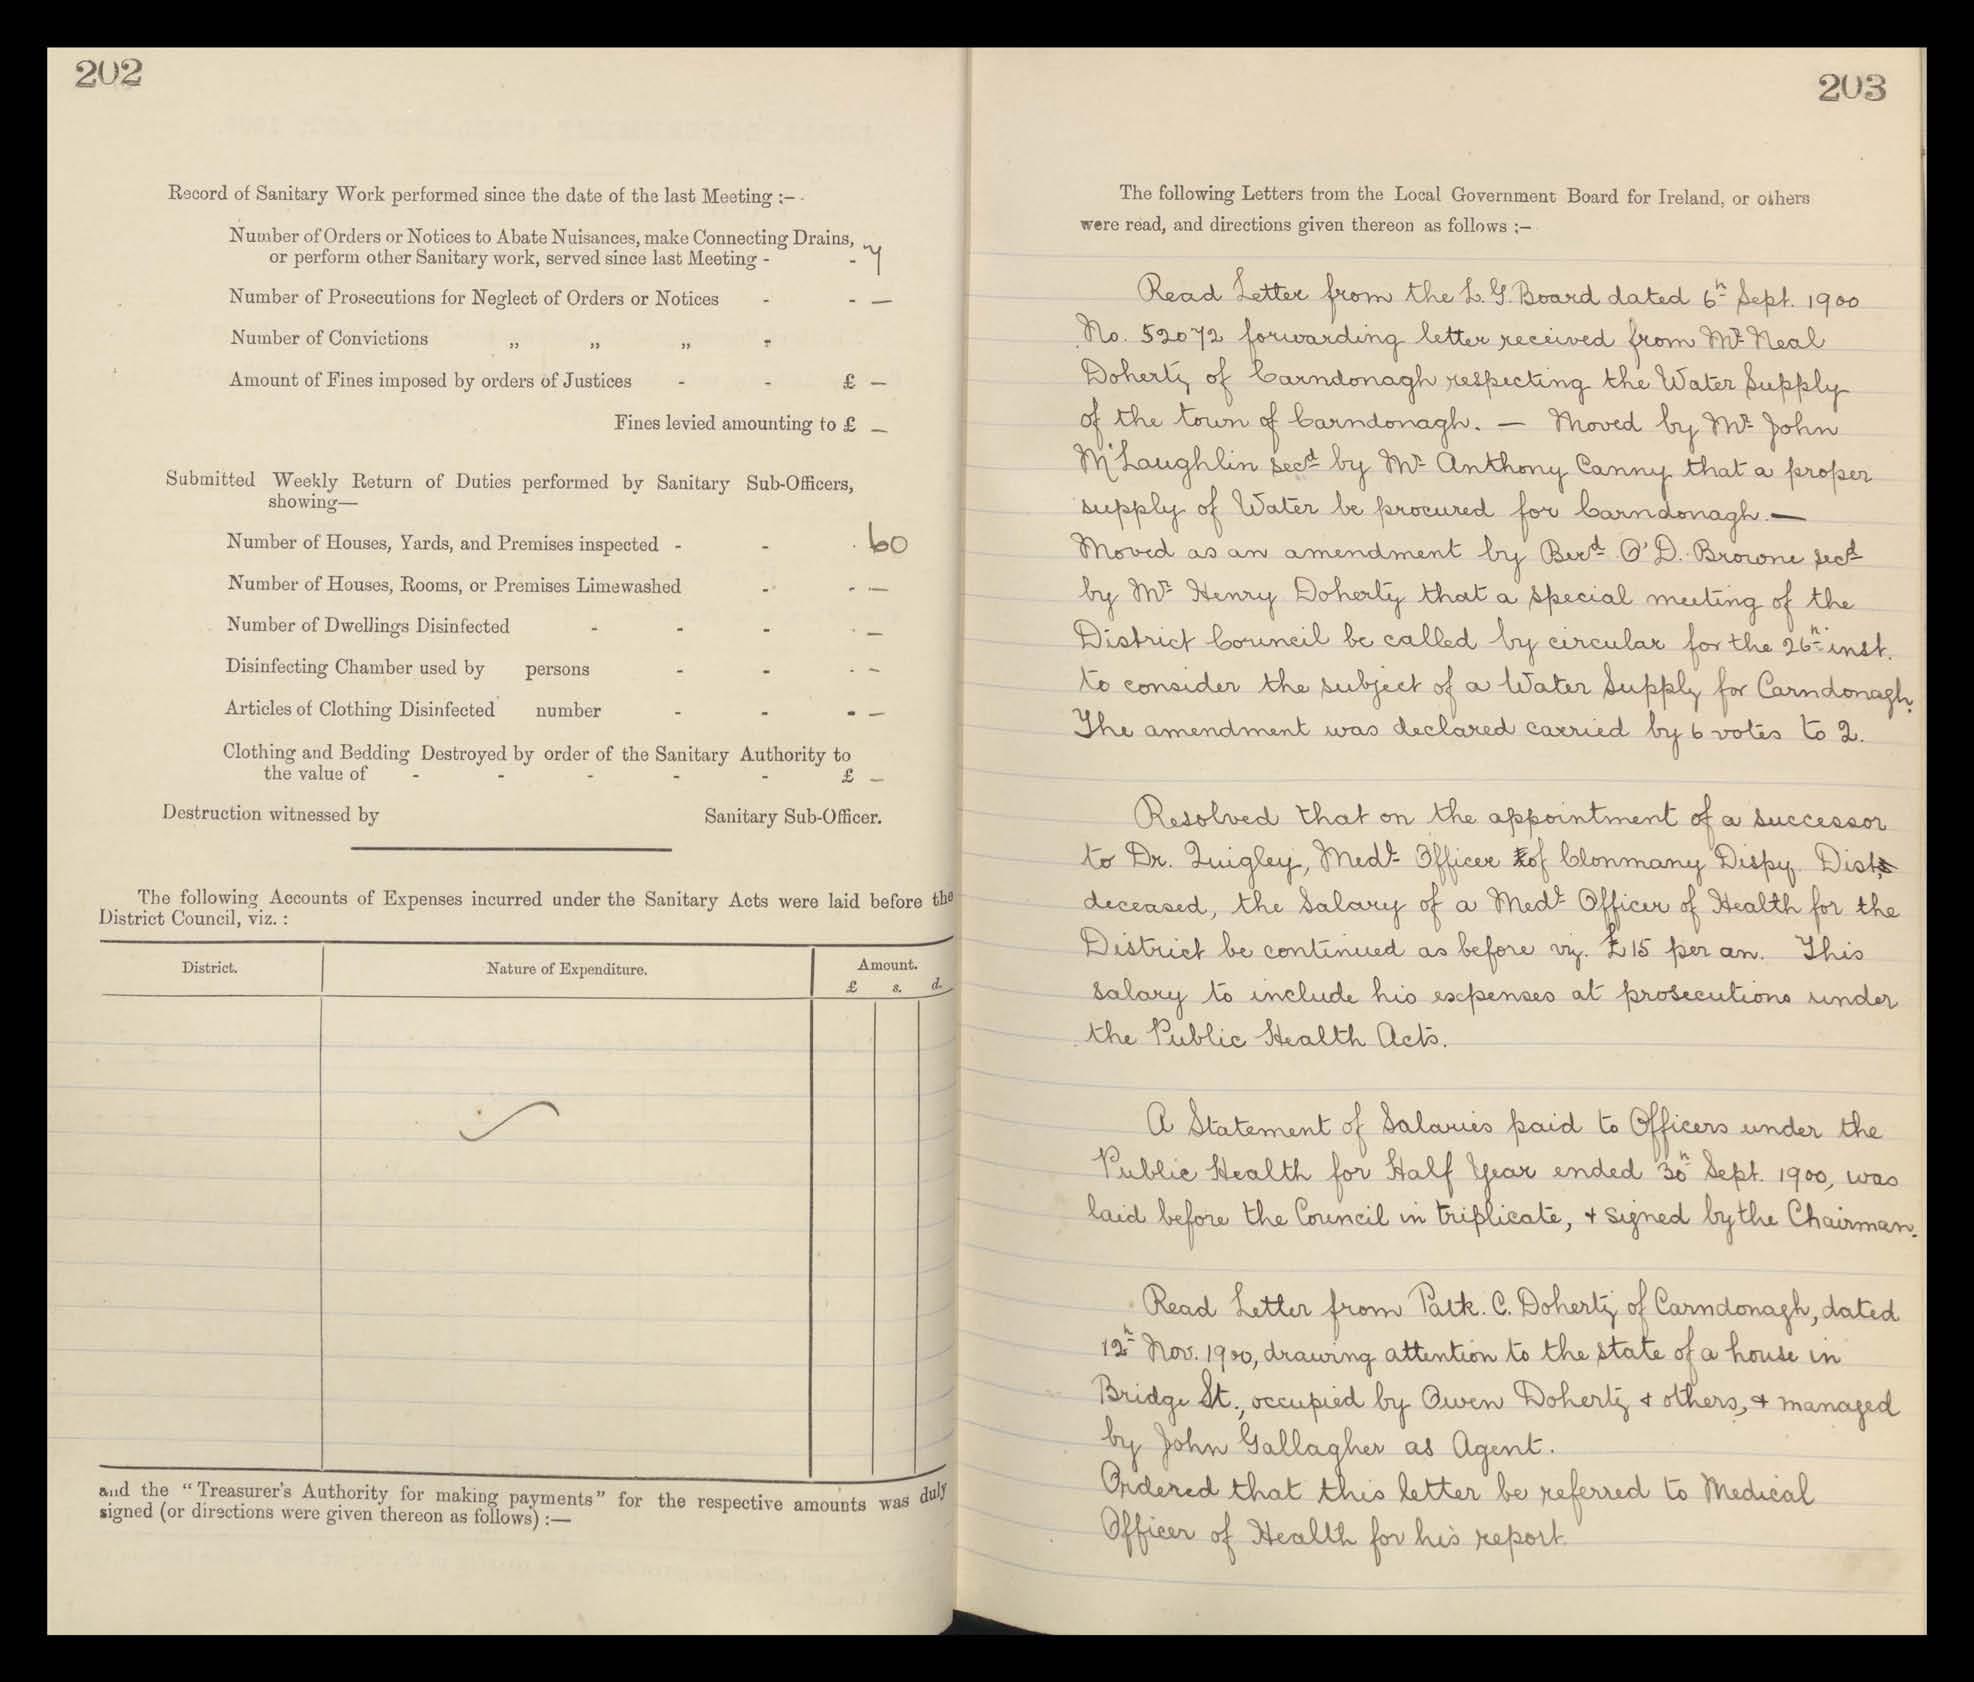 202
Record of Sanitary Work performed since the date of the last Meeting :—
Number of Orders or Notices to Abate Nuisances, make Connecting Drains,
or perform other Sanitary work, served since last Meeting - - 7
Number of Prosecutions for Neglect of Orders or Notices - - —
Number of Convictions „ „ „ -
Amount of Fines imposed by orders of Justices - - £ —
Fines levied amounting to £ —
Submitted Weekly Return of Duties performed by Sanitary Sub-Officers,
showing—
Number of Houses, Yards, and Premises inspected - - 60
Number of Houses, Rooms, or Premises Limewashed - - —
Number of Dwellings Disinfected - - - —
Disinfecting Chamber used by persons - - - —
Articles of Clothing Disinfected number - - - —
Clothing and Bedding Destroyed by order of the Sanitary Authority to
the value of - - - - - £ —
Destruction witnessed by Sanitary Sub-Officer.
The following Accounts of Expenses incurred under the Sanitary Acts were laid before the
District Council, viz. :
District. Nature of Expenditure. Amount.
£ s. d.
and the "Treasurer's Authority for making payments" for the respective amounts was duly
signed (or directions were given thereon as follows) :—
203
The following Letters from the Local Government Board for Ireland, or others
were read, and directions given thereon as follows :—
Read Letter from the L. G. Board dated 6th Sept. 1900
No. 52072 forwarding letter received from Mr Neal
Doherty of Carndonagh respecting the Water Supply
of the town of Carndonagh. — Moved by Mr John
M'Laughlin secd by Mr Anthony Canny that a proper
supply of Water be procured for Carndonagh. —
Moved as an amendment by Berd O'D. Browne secd
by Mr Henry Doherty that a special meeting of the
District Council be called by circular for the 26th inst.
to consider the subject of a Water Supply for Carndonagh.
The amendment was declared carried by 6 votes to 2.
Resolved that on the appointment of a successor
to Dr. Quigley, Medl Officer of Clonmany Dispy. Dist.
deceased, the Salary of a Medl Officer of Health for the
District be continued as before viz. £15 per an. This
salary to include his expenses at prosecutions under
the Public Health Acts.
A Statement of Salaries paid to Officers under the
Public Health for Half Year ended 30th Sept. 1900, was
laid before the Council in triplicate, + signed by the Chairman.
Read Letter from Patk. C. Doherty of Carndonagh, dated
12th Nov. 1900, drawing attention to the state of a house in
Bridge St., occupied by Owen Doherty + others, + managed
by John Gallagher as Agent.
Ordered that this letter be referred to Medical
Officer of Health for his report.